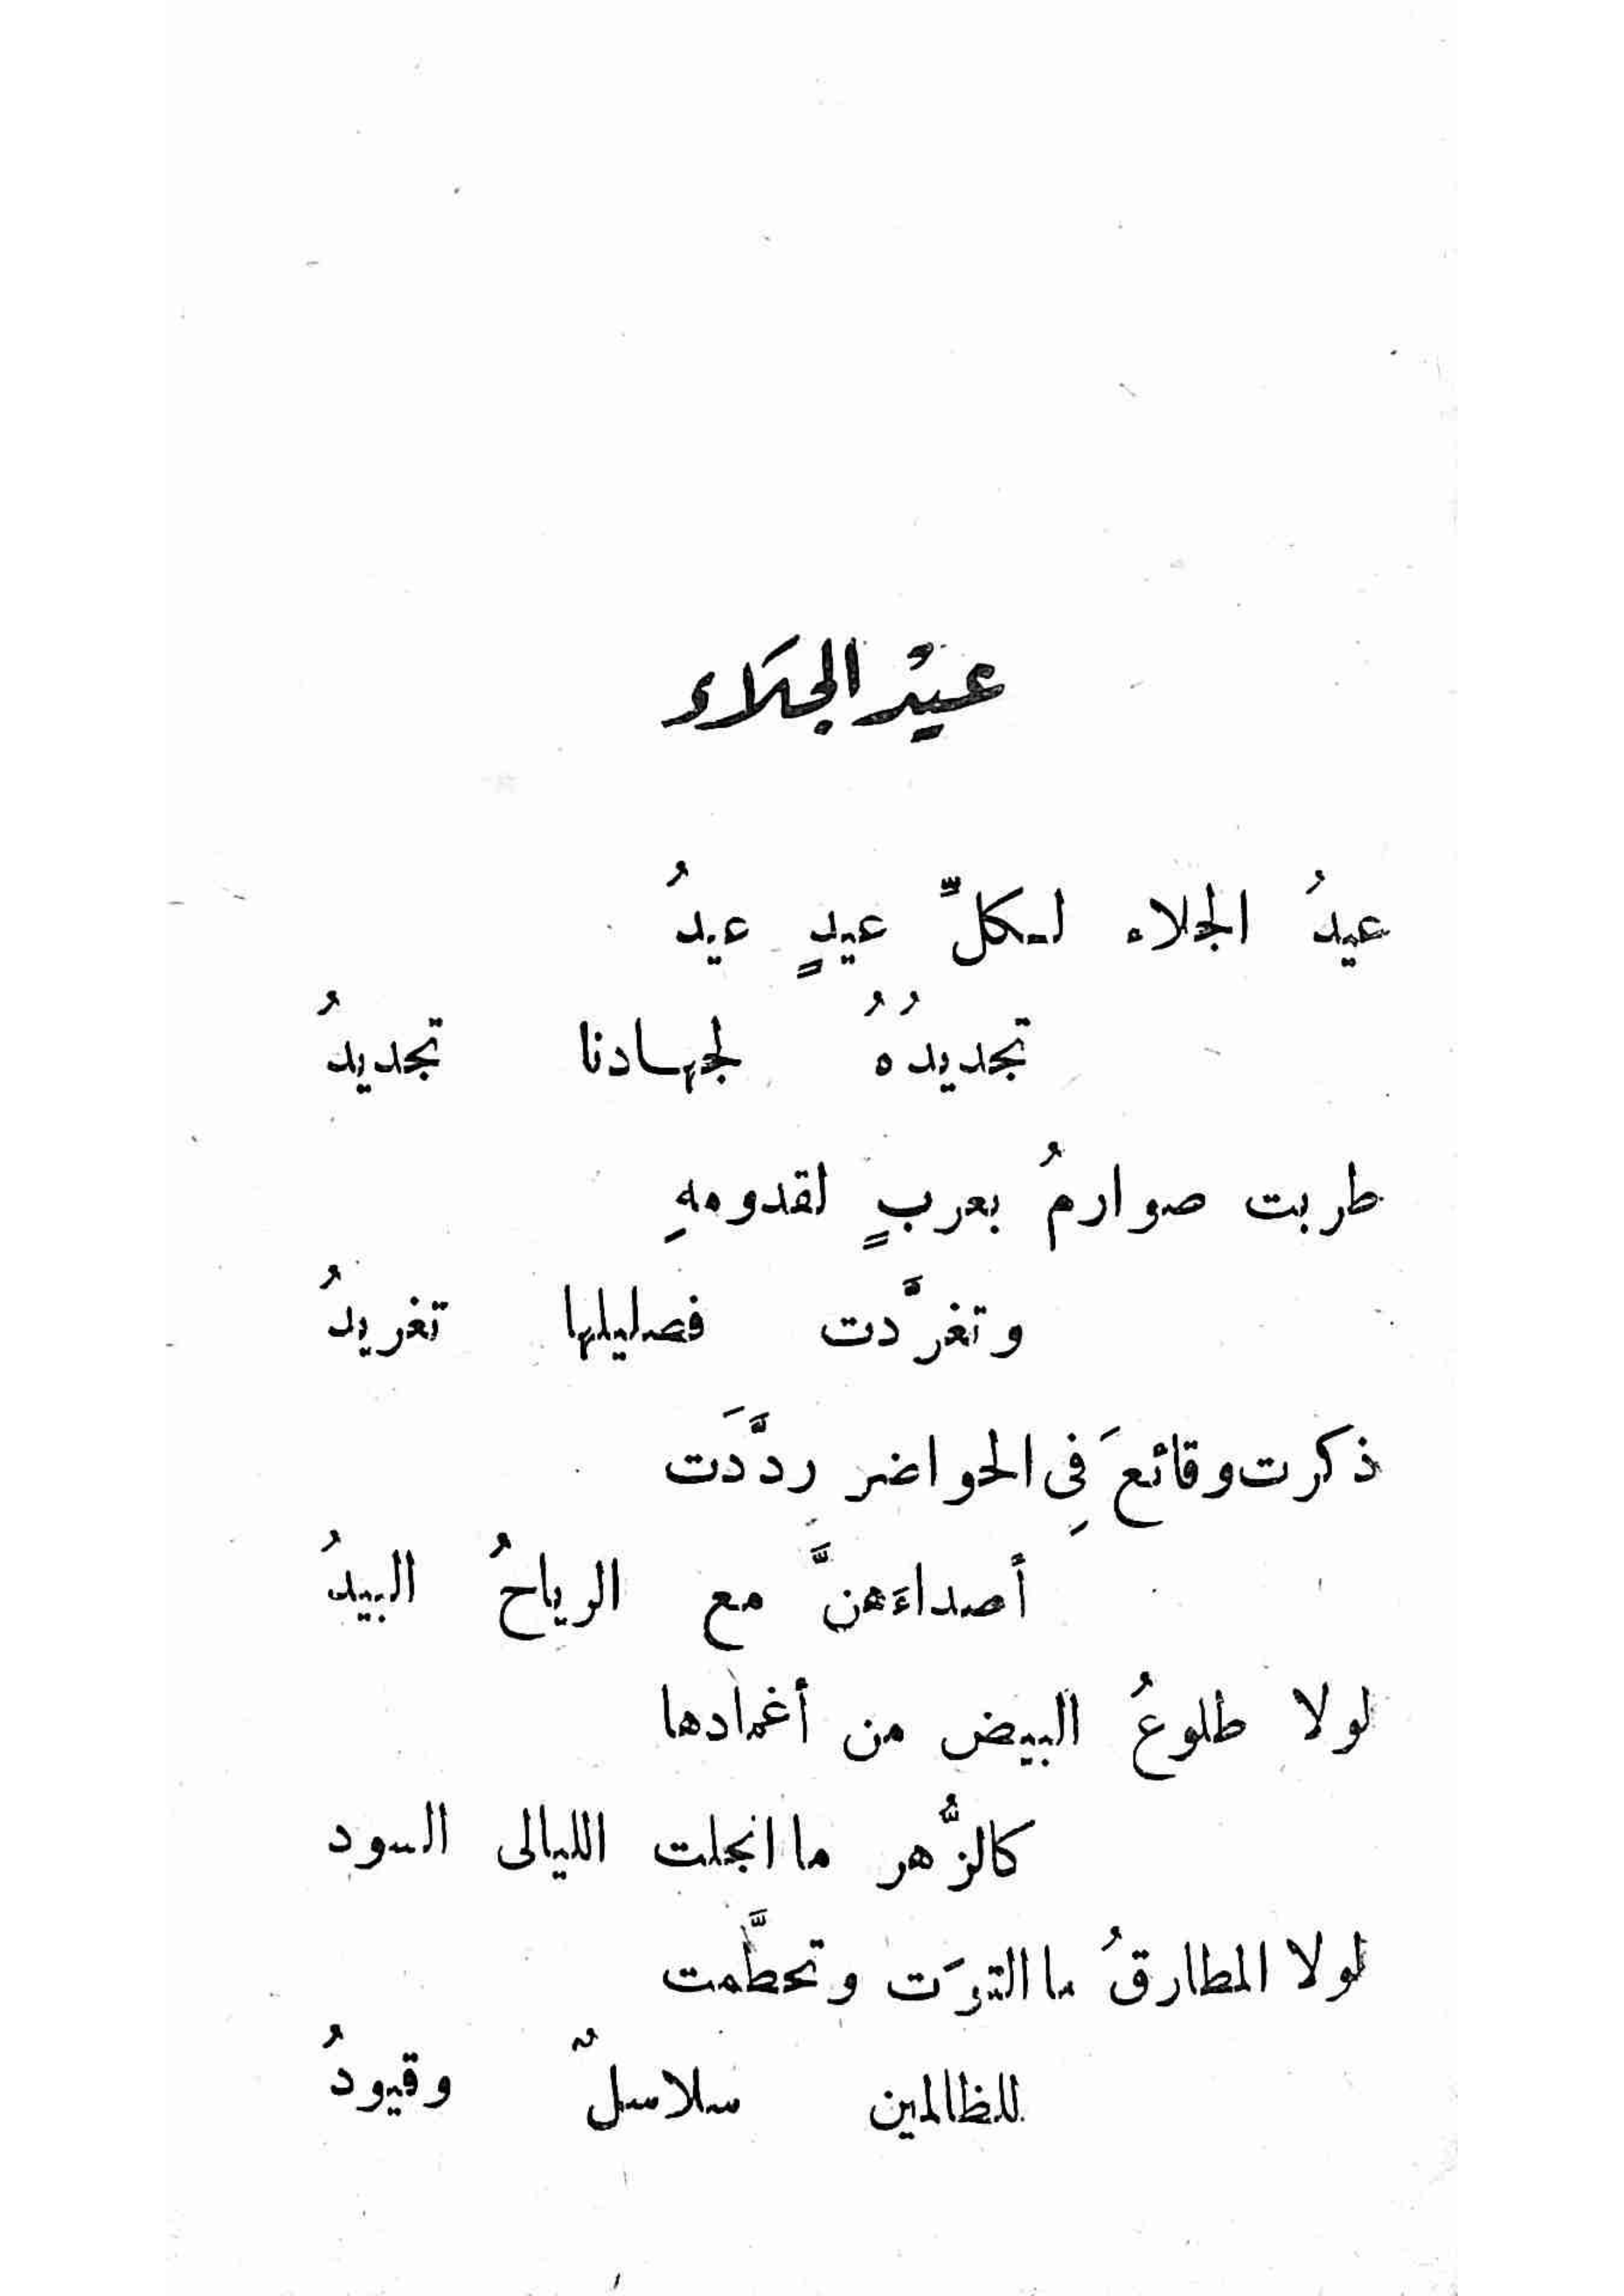 عيْد الجلَاء
عيدُ الجلاء لكلِّ عيدٍ عيدُ
تجديدُهُ لجهادنا تجديدُ
طربت صوارمُ بعربٍ لقدومهِ
وتغرَّدت فصليلها تغريدُ
ذكرت وقائعَ فِي الحواضر ردَّدَت
أصداءَهنَّ مع الرياحُ البيدُ
لولا طلوعُ البيض من أغمادها
كالزُّهر ما انجلت الليالى السود
لولا المطارقُ ما التوَت وتحطَّمت
للظالمين سلاسلٌ وقيودُ